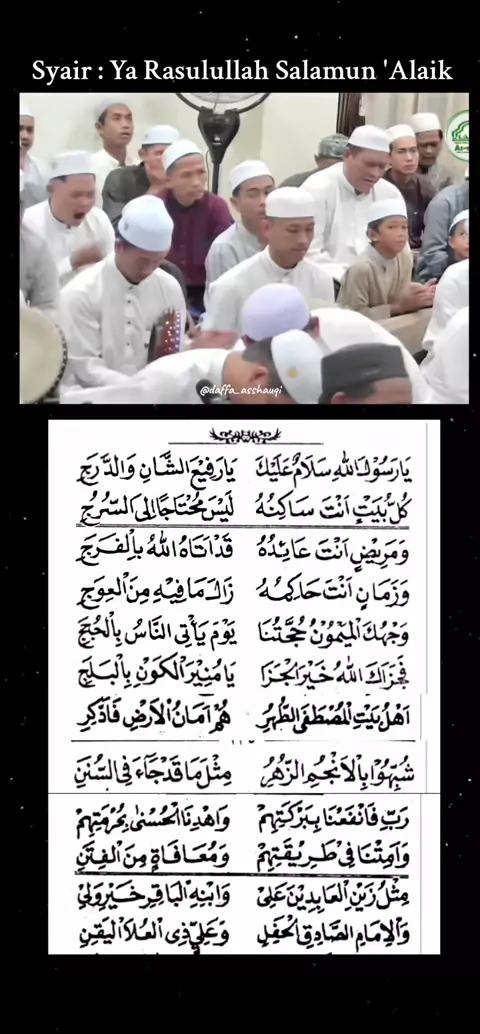 Syair : Ya Rasulullah Salamun 'Alaik
@daffa_asshauqi
يَارَسُوْلَ اللهِ سَلَامٌ عَلَيْكَ يَارَفِيْعَ الشَّانِ وَالدَّرَجِ
كُلُّ بَيْتٍ اَنْتَ سَاكِنُهُ لَيْسَ مُحْتَاجًا اِلَى السُّرُجِ
وَمَرِيْضٍ اَنْتَ عَائِدُهُ قَدْ اَتَاهُ اللهُ بِالْفَرَجِ
وَزَمَانٍ اَنْتَ حَاكِمُهُ زَالَ مَا فِيْهِ مِنَ الْعِوَجِ
وَجْهُكَ الْمَيْمُوْنُ حُجَّتُنَا يَوْمَ يَأْتِى النَّاسُ بِالْحُجَجِ
فَجَزَاكَ اللهُ خَيْرَ الْجَزَا يَا مُنِيْرَ الْكَوْنِ بِالْبَلَجِ
اَهْلُ بَيْتِ الْمُصْطَفَى الطُّهُرِ هُمْ اَمَانُ الْاَرْضِ فَادَّكِرِ
شُبِّهُوْا بِالْاَنْجُمِ الزُّهُرِ مِثْلَ مَا قَدْ جَاءَ فِى السُّنَنِ
رَبِّ فَانْفَعْنَا بِبَرْكَتِهِمْ وَاهْدِنَا الْحُسْنٰى بِحُرْمَتِهِمْ
وَاَمِتْنَا فِى طَرِيْقَتِهِمْ وَمُعَافَاةٍ مِنَ الْفِتَنِ
مِثْلُ زَيْنِ الْعَابِدِيْنَ عَلِىْ وَابْنِهِ الْبَاقِرِ خَيْرِ وَلِىْ
وَالْاِمَامِ الصَّادِقِ الْحَفِلِ وَعَلِيٍّ ذِى الْعُلَا الْيَقِنِ